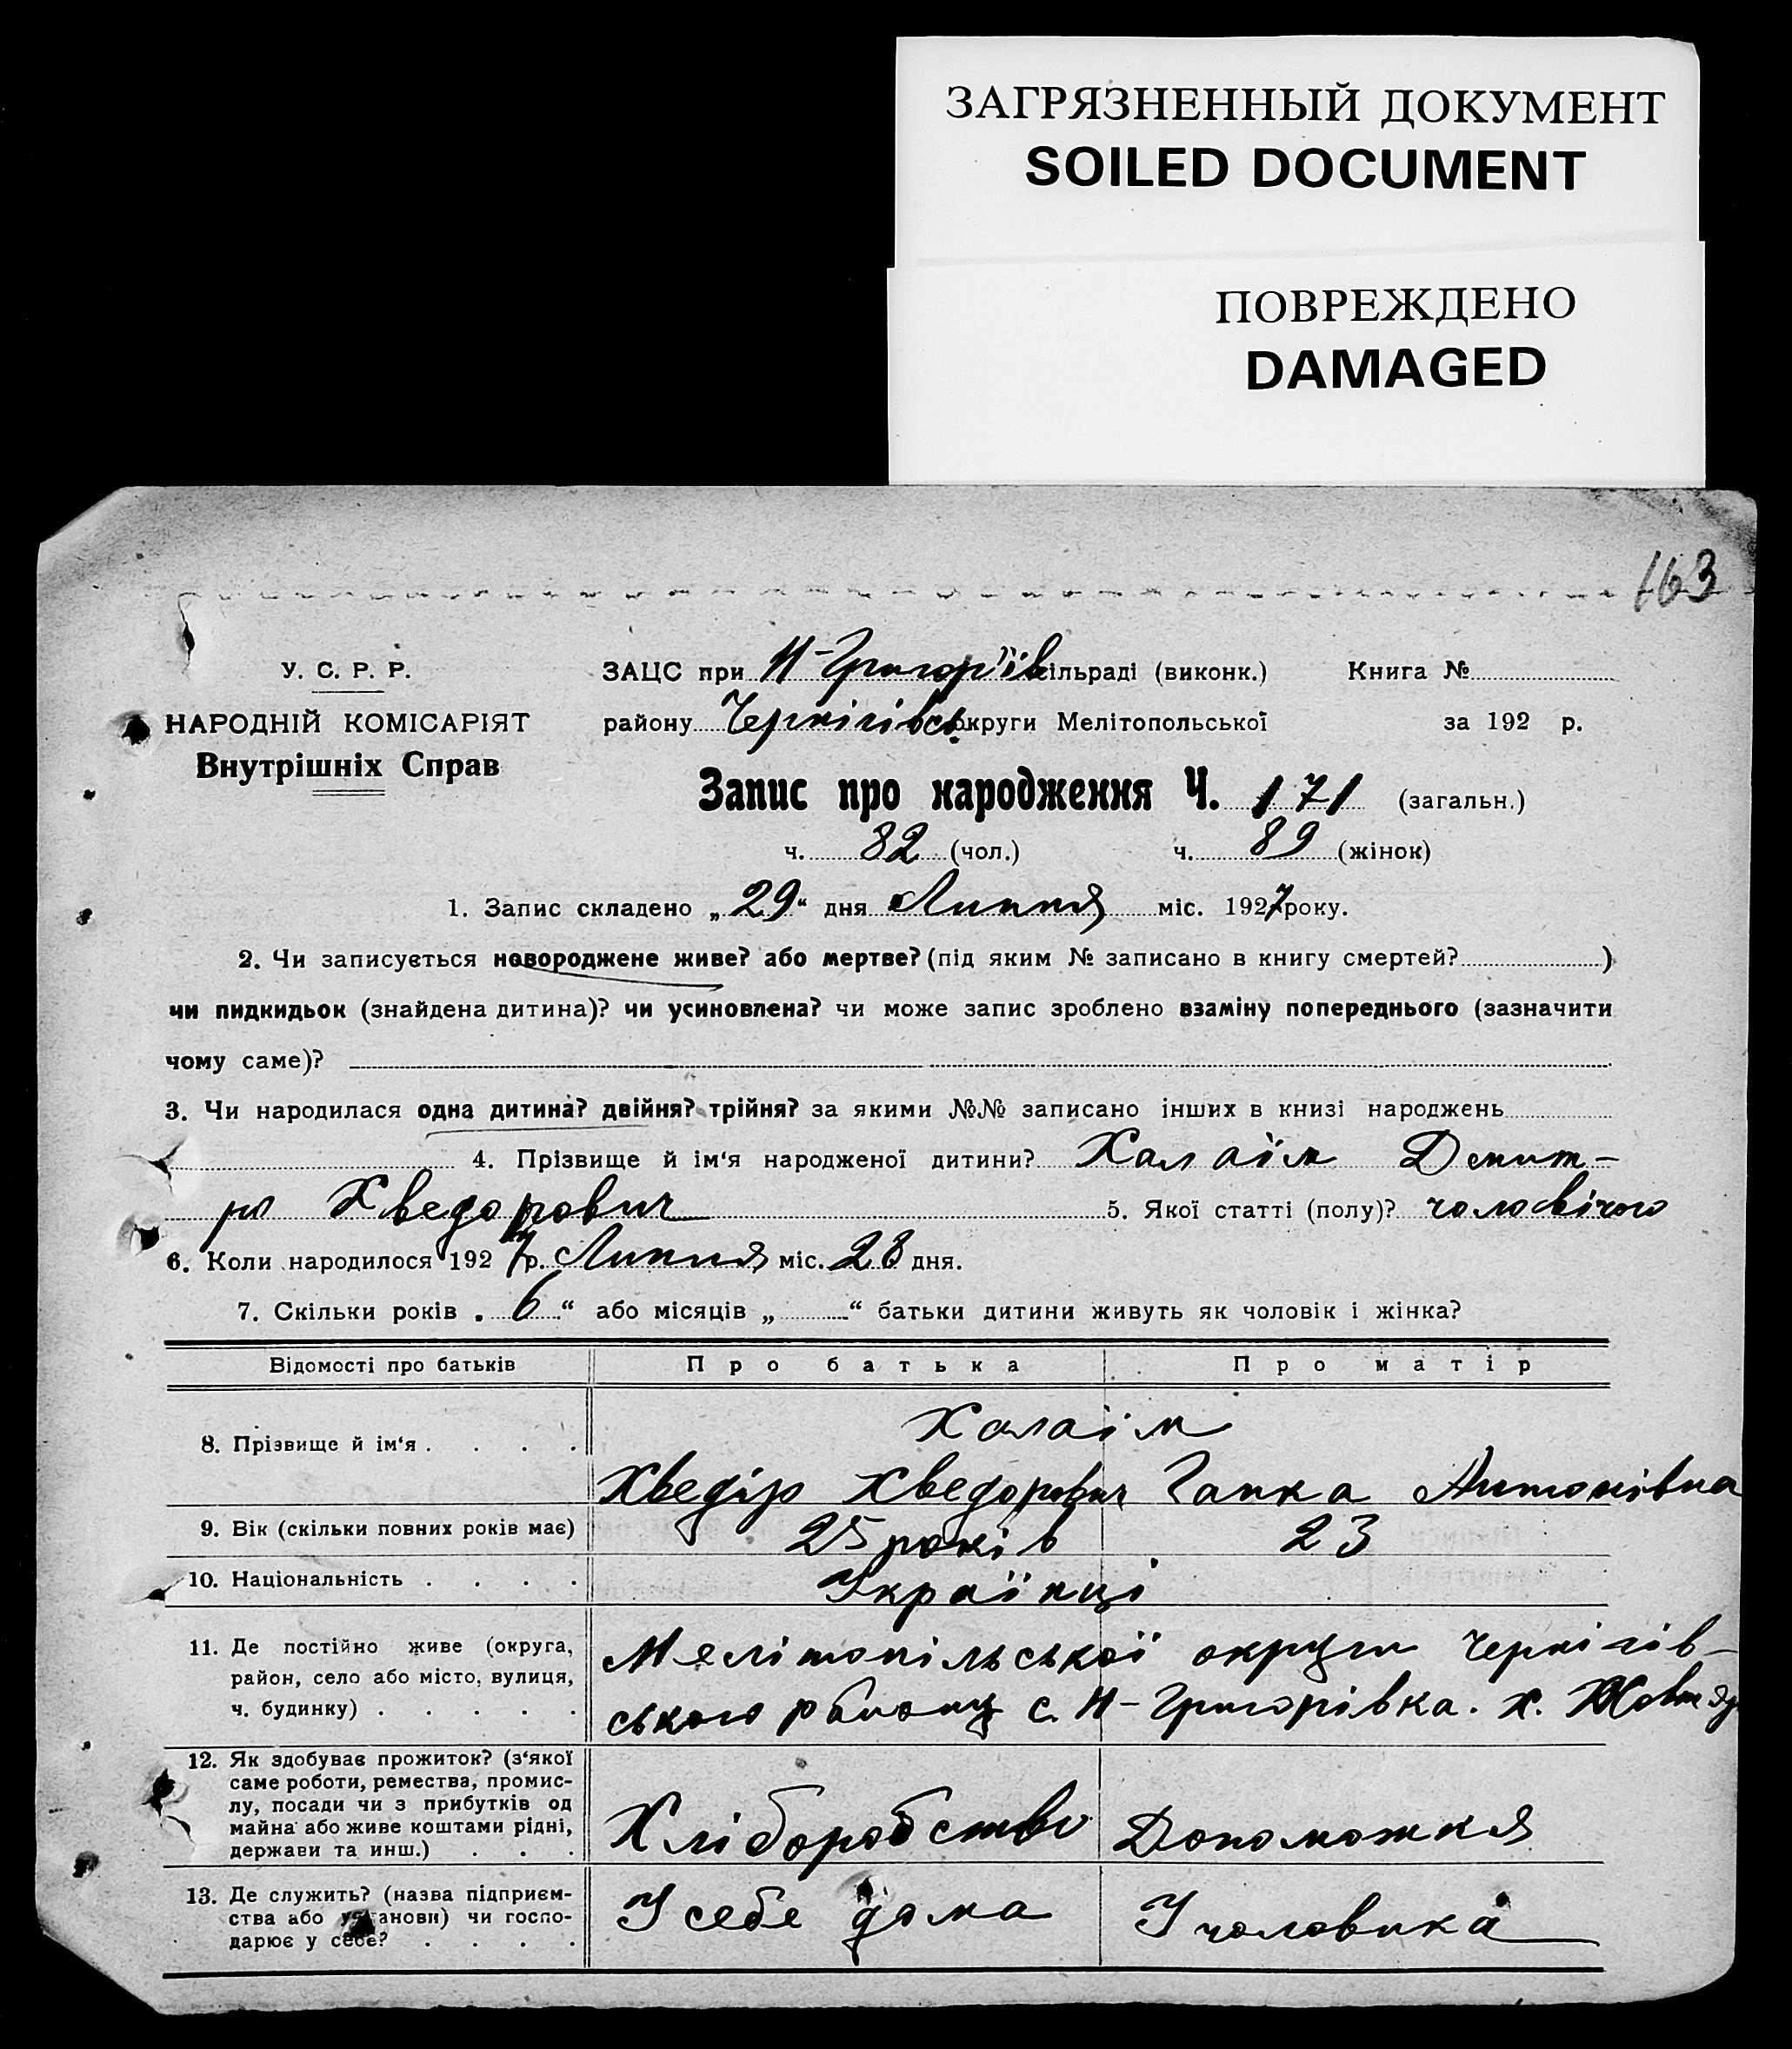 ЗАГРЯЗНЕННЫЙ ДОКУМЕНТ
SOILED DOCUMENT
ПОВРЕЖДЕНО
DAMAGED
163
У. С. Р. Р.
НАРОДНІЙ КОМІСАРІЯТ
Внутрішніх Справ
ЗАЦС при Н-Григор'їв сільраді (виконк.) Книга №
району Чернігівсь округи Мелітопольської за 192 р.
Запис про народження Ч. 171 (загальн.)
ч. 82 (чол.) ч. 89 (жінок)
1. Запис складено „29“ дня Липня міс. 1927 року.
2. Чи записується новороджене живе? або мертве? (під яким № записано в книгу смертей? )
чи пидкидьок (знайдена дитина)? чи усиновлена? чи може запис зроблено взаміну попереднього (зазначити
чому саме)?
3. Чи народилася одна дитина? двійня? трійня? за якими №№ записано інших в книзі народжень
4. Прізвище й ім'я народженої дитини? Халаїм Дмит-
ро Хведорович 5. Якої статті (полу)? чоловічого
6. Коли народилося 1927 р. Липня міс. 28 дня.
7. Скільки років „6“ або місяців „ “ батьки дитини живуть як чоловік і жінка?
Відомості про батьків Про батька Про матір
8. Прізвище й ім'я . . . . Халаїм
Хведір Хведорович Гапка Антонівна
9. Вік (скільки повних років має) 25 років 23
10. Національність . . . . Українці
11. Де постійно живе (округа,
район, село або місто, вулиця,
ч. будинку) . . . . .
Мелітопільської округи Чернігів-
ського району с. Н-Григорівка. х.
12. Як здобуває прожиток? (з'якої
саме роботи, ремества, промис-
лу, посади чи з прибутків од
майна або живе коштами рідні,
держави та инш.) . . .
Хліборобство Допоможкя
13. Де служить? (назва підприєм-
ства або установи) чи госпо-
дарює у себе? . . . .
У себе дома У чоловика